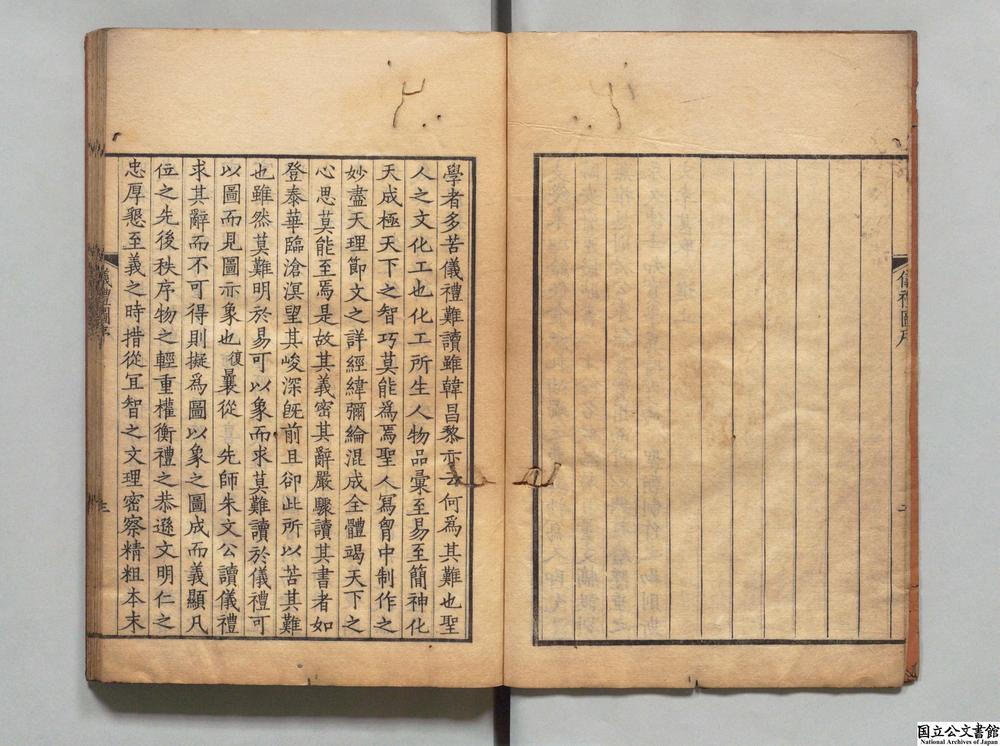 儀禮圖序
學者多苦儀禮難讀雖韓昌黎亦云何爲其難也聖
人之文化工也化工所生人物品彙至易至簡神化
天成極天下之智巧莫能爲焉聖人寫胷中制作之
妙盡天理節文之詳經緯彌綸混成全體竭天下之
心思莫能至焉是故其義密其辭嚴驟讀其書者如
登泰華臨滄溟望其峻深旣前且卻此所以苦其難
也雖然莫難明於易可以象而求莫難讀於儀禮可
以圖而見圖亦象也復曩從 先師朱文公讀儀禮
求其辭而不可得則擬爲圖以象之圖成而義顯凡
位之先後秩序物之輕重權衡禮之恭遜文明仁之
忠厚懇至義之時措從宜智之文理密察精粗本末
儀禮圖序
三
国立公文書館
National Archives of Japan